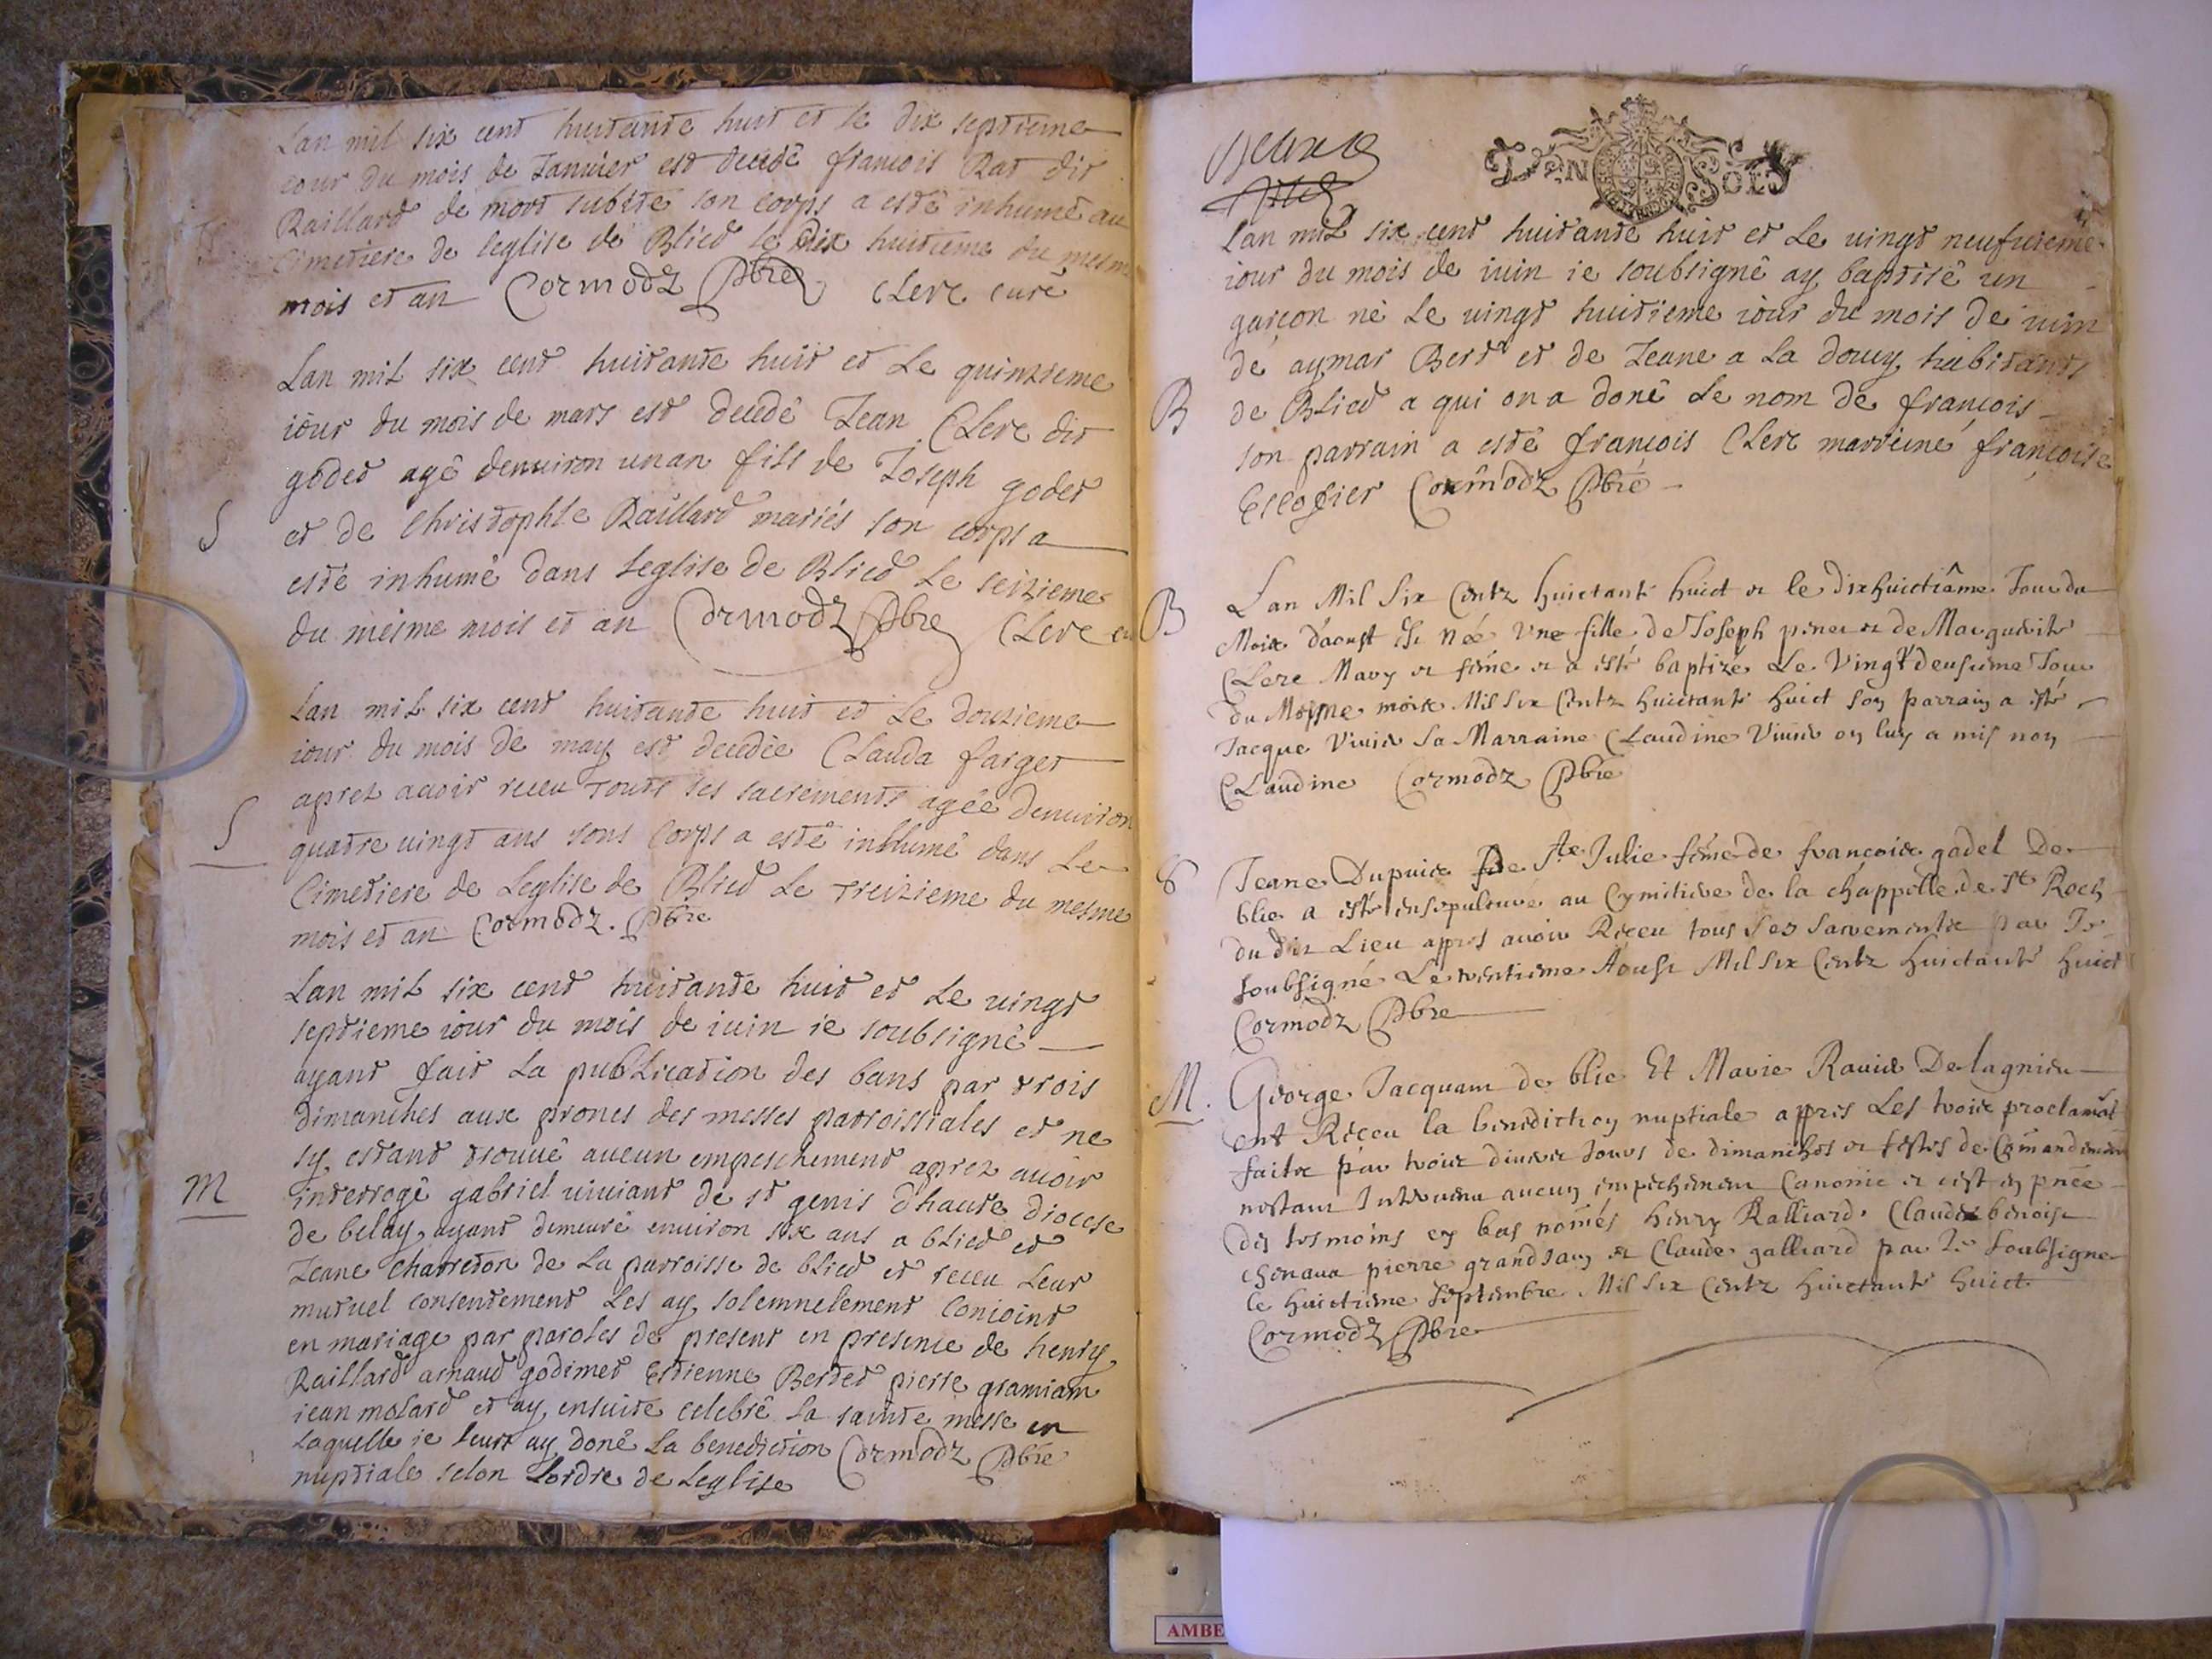 Lan mil six cent huitante huit et le dix septieme
iour du mois de Ianuier est decedé francois Rat dit
Raillard de mort subite son corps a esté inhumé au
Cimetiere de leglise de Blied le dix huitieme du mesme
mois et an Cormodz Pbre Clerc curé
Lan mil six cent huitante huit et le quinzieme
iour du mois de mars est decedé Jean Clerc dit
S
godet agé denuiron un an fils de Ioseph godet
et de Christophle Raillard mariés son corps a
esté inhumé dans leglise de Blied le seizieme
du mesme mois et an Cormodz Pbre Clerc cu
Lan mil six cent huitante huit et le douzieme
iour du mois de may est decedée Clauda farget
S
aprez auoir receu touts les sacrements agée denuiron
quatre uingt ans sons corps a esté inhumé dans le
Cimetiere de leglise de Blied le treizieme du mesme
mois et an Cormodz. Pbre
Lan mil six cent huitante huit et le uingt
septieme iour du mois de iuin ie soubsigné
ayant fait la publication des bans par trois
dimanches aux prones des messes parroissiales et ne
sy estant trouué aucun empeschement aprez auoir
M
interrogé gabriel uiuiant de st genis dhaute diocese
de belay, ayant demeuré enuiron six ans a blied et
Ieane charreton de la parroisse de blied et receu leur
mutuel consentement les ay solemnelement conioint
en mariage par paroles de present en presence de henry
Raillard arnaud godimet Estienne Bertet pierre gramiam
iean molard et ay ensuite celebré la sainte messe en
laquelle ie leurs ay doné la benediction Cormodz Pbre
nuptiale selon lordre de leglise
DEN SOLS
Lan mil six cent huitante huit et le uingt neufuieme
iour du mois de iuin ie soubsigné ay baptisé un
garcon né le uingt huitieme iour du mois de iuin
de aymar Bert et de Ieane a la doucy habitants
B
de Blied a qui on a doné le nom de francois
son parrain a esté francois Clerc marreine françoise
Escofier Cormodz Pbre
Lan Mil Six Centz huictante huict et le dixhuictiême Jour du
B
Mois d'aoust Est née Vne fille de Joseph piner et de Marguerite
Clerc Mary et féme et a esté baptizé Le Vingt deusieme Jour
du Mesme mois Mil Six Centz huictante huict son parrain a esté
Jacque Viuier Sa Marraine Claudine Viuier on luy a mis nom
Claudine Cormodz Pbre
S
Jeane Dupuis de Ste Julie féme de francois gadel De
blie a esté ensepulturé au Cymitiere de la chappelle de St Roch
du dit Lieu appres auoir Receu tous Ses Sacrements par Je
soubsigné Le trentieme Aoust Mil Six Centz huictante huict
Cormodz Pbre
M.
George Jacquam de blie Et Marie Rauier De lagnieu
ont Receu la benediction nuptiale appres Les trois proclamat
faite par trois diuers Jours de dimanches et festes de Comandement
nestant Interuenu aucun empechement Canonic et cest en pnce
des tesmoins en bas només henry Ralliard Claude benoist
chenaua pierre grandJany et Claude galliard par Je Soubsigne
le huictieme Septembre Mil Six Centz huictante huict
Cormodz Pbre
AMBE